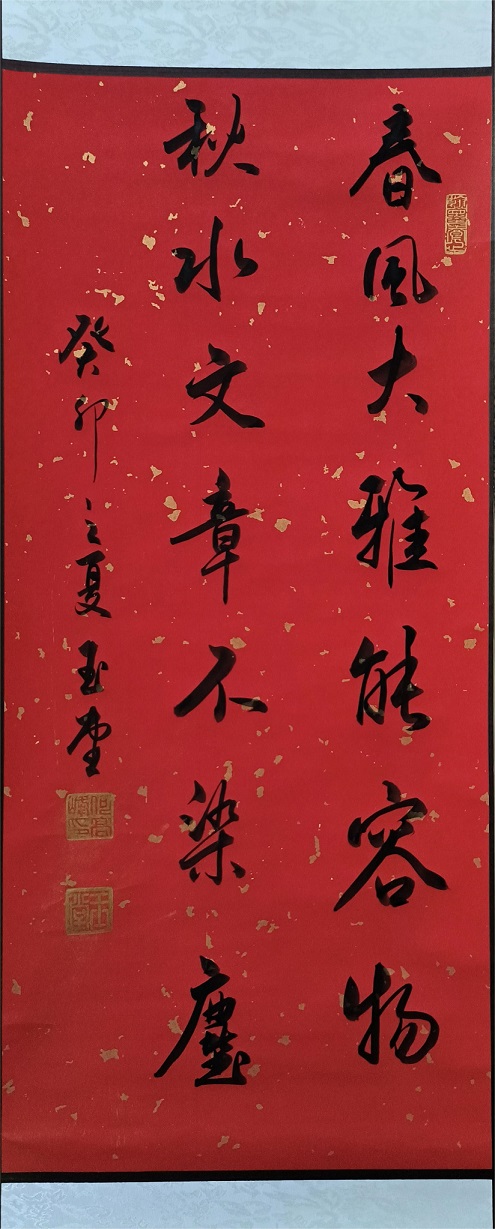 春風大雅能容物
秋水文章不染塵
癸卯之夏玉堂